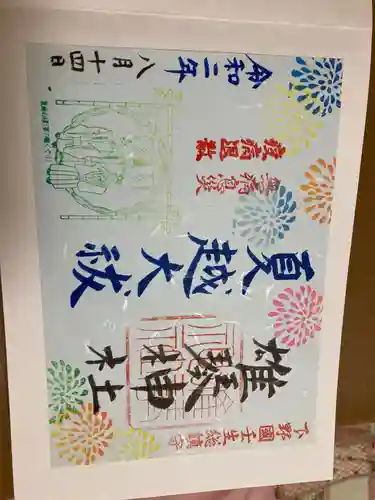 下野國壬生総鎮守
雄琴神社
夏越大祓
疫病退散
無病息災
令和二年 八月十四日